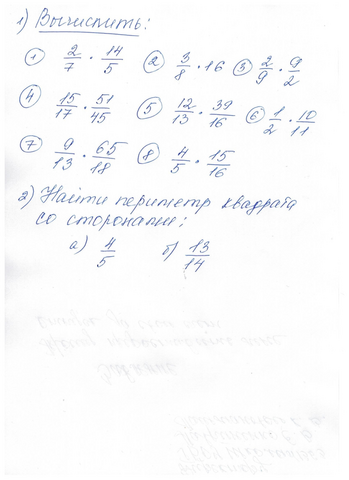 1) Вычислить:
① 2/7 · 14/5 ② 3/8 · 16 ③ 2/9 · 9/2
④ 15/17 · 51/45 ⑤ 12/13 · 39/16 ⑥ 1/2 · 10/11
⑦ 9/13 · 65/18 ⑧ 4/5 · 15/16
2) Найти периметр квадрата
со сторонами:
а) 4/5 б) 13/14